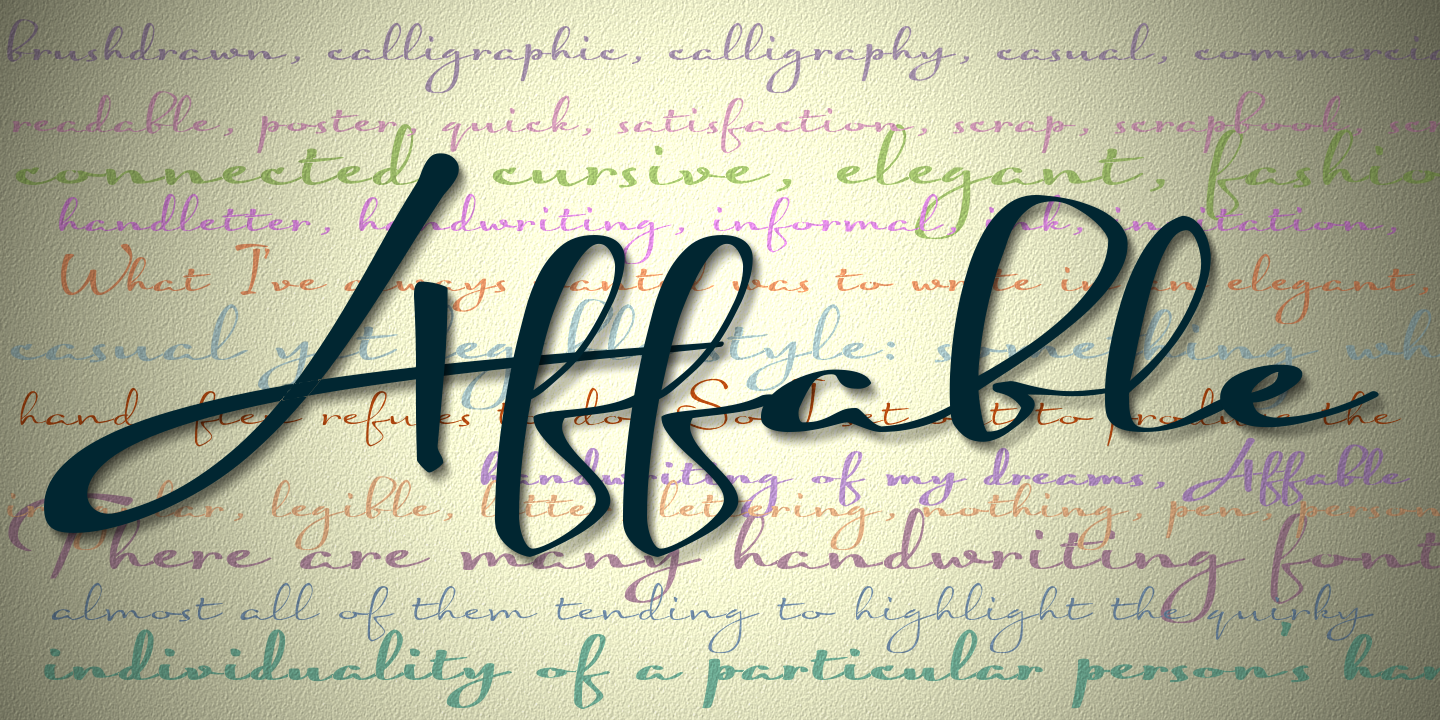 brushdrawn, calligraphic, calligraphy, casual,
readable, poster, quick, satisfaction, scrap, scrapbook,
connected, cursive, elegant,
handletter, handwriting, informal, ink, invitation,
What I've always wanted was to write in an elegant,
Affable
casual yet legible style: something
hand often refuses to do. So I set out to produce the
handwriting of my dreams, Affable
legible, letter, lettering, nothing, pen,
There are many handwriting
almost all of them tending to highlight the quirky
individuality of a particular person's